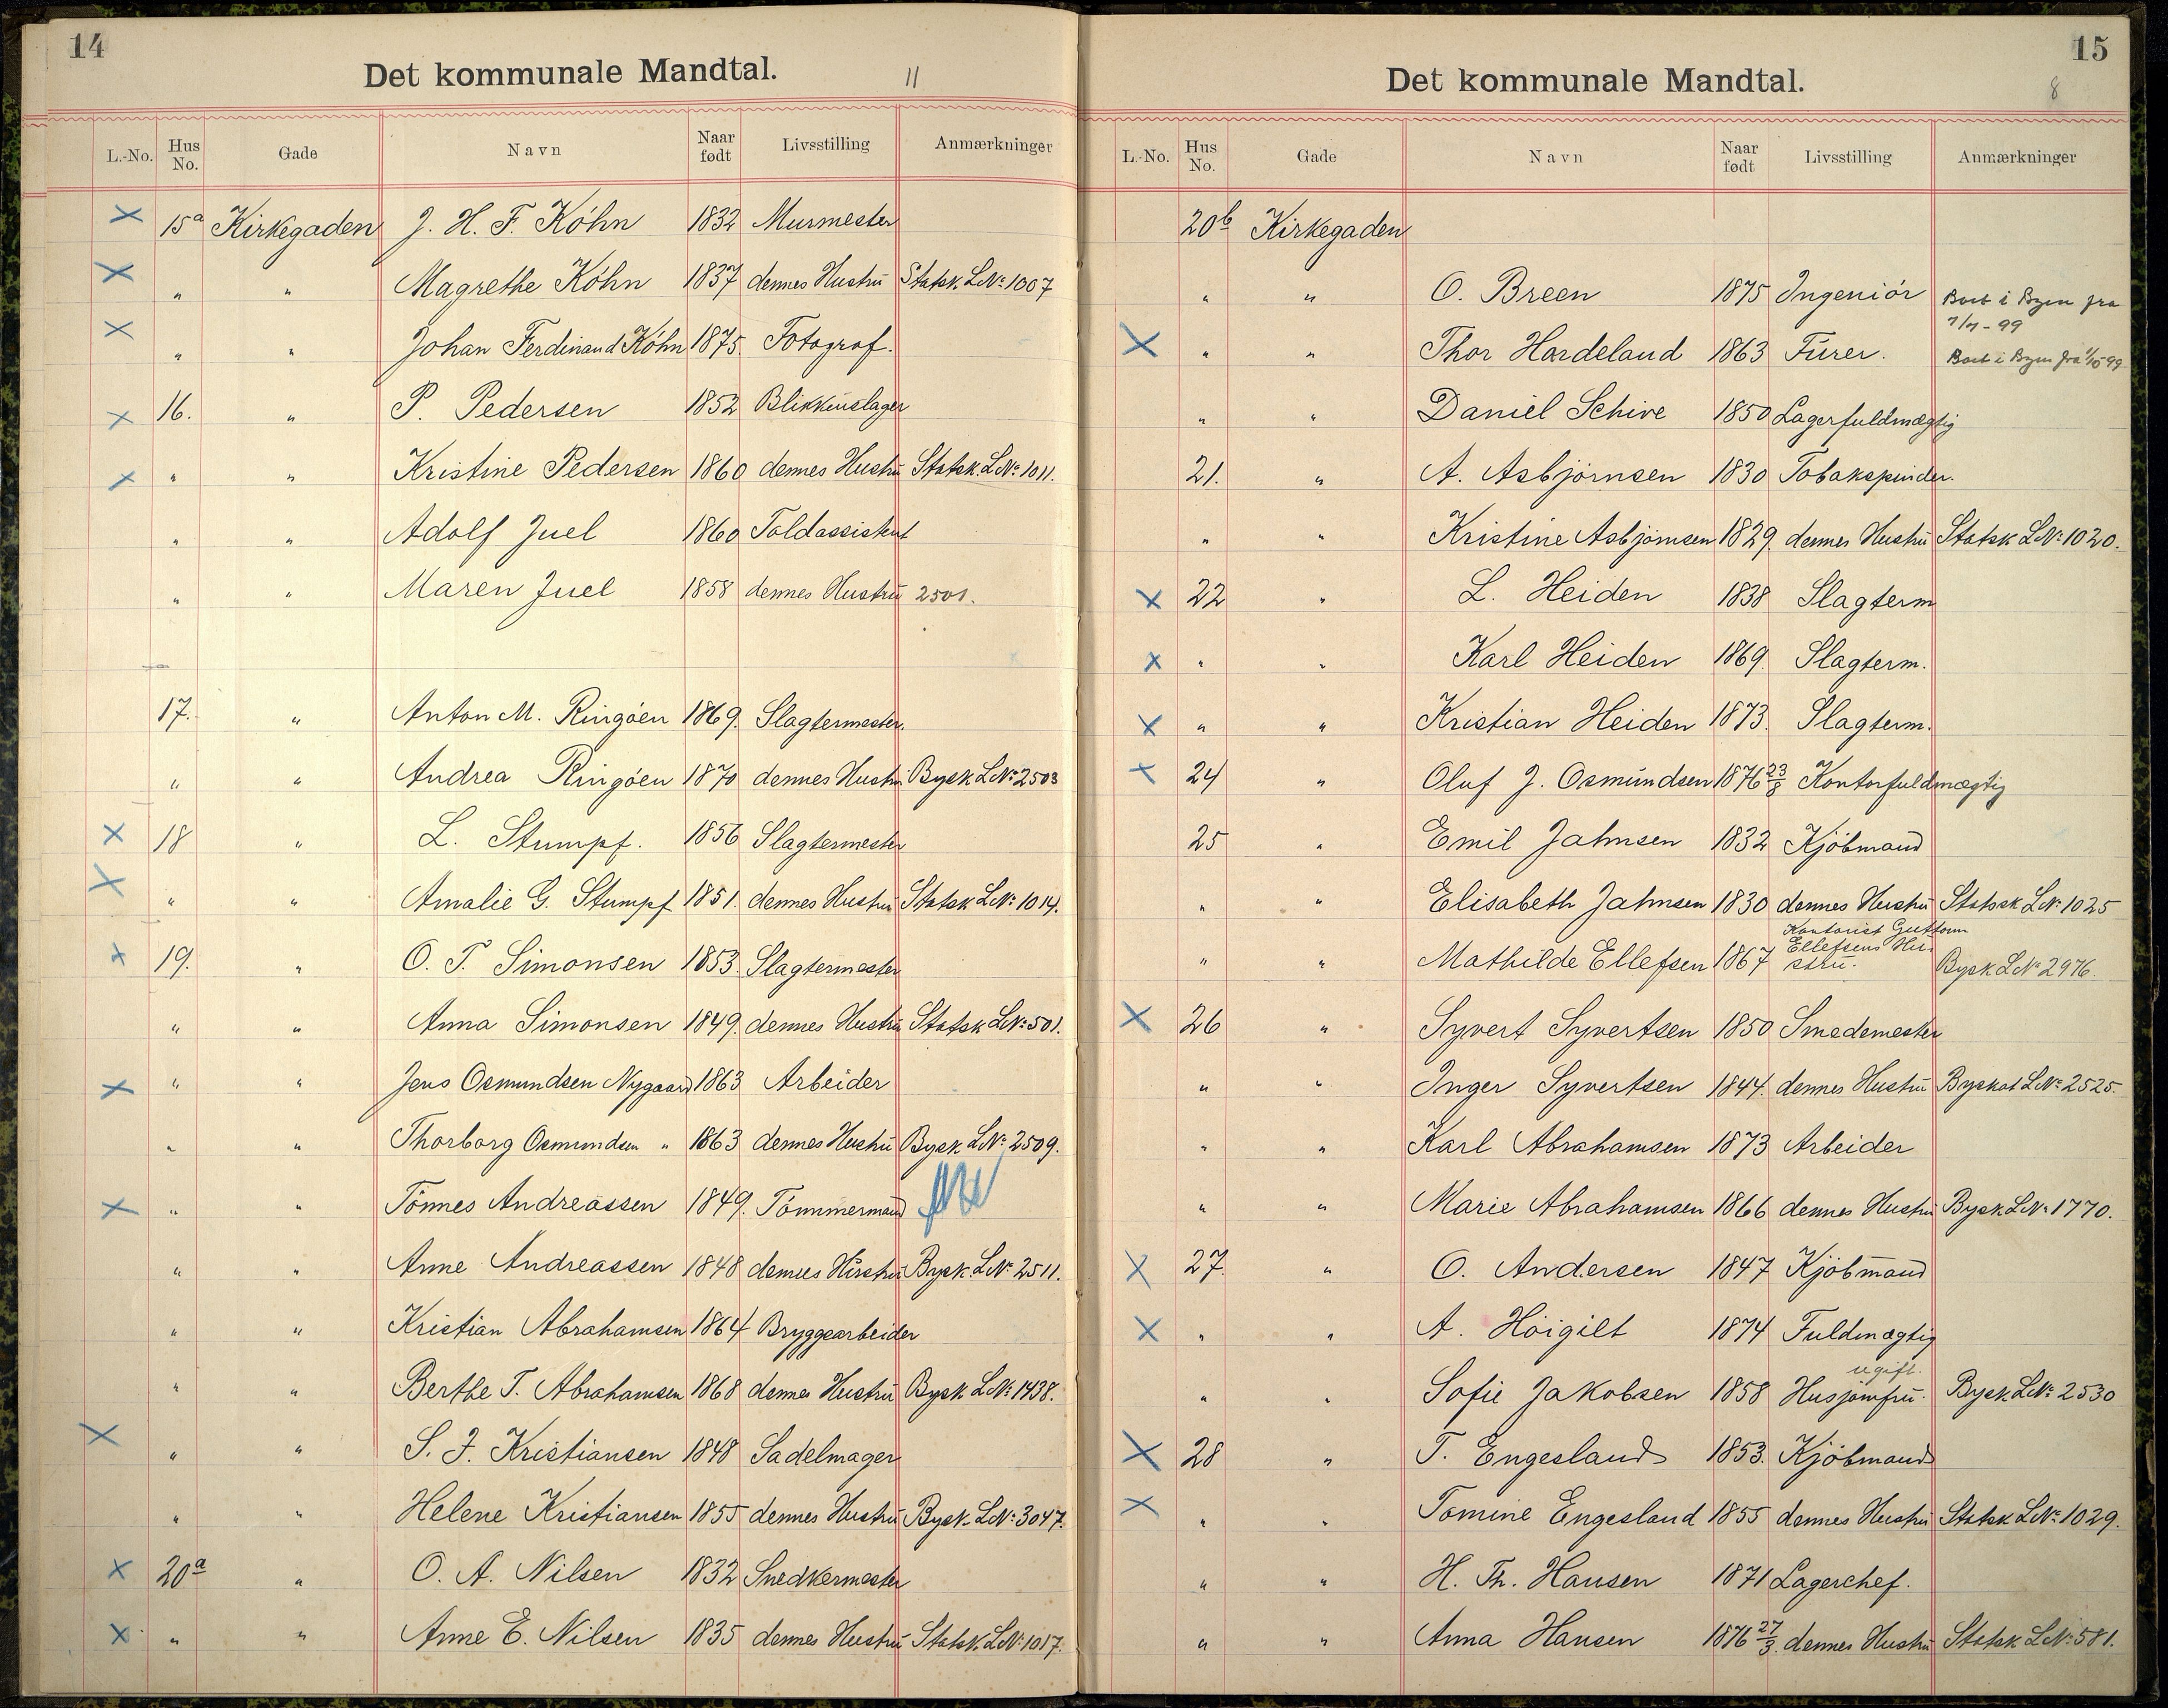 14
Det kommunale Mandtal.
11
L.-No. Hus No. Gade Navn Naar født Livsstilling Anmærkninger
X 15a Kirkegaden J. H. F. Köhn 1832 Murmester
X " " Magrethe Köhn 1837 dennes Hustru Statsk. LNo 1007
X " " Johan Ferdinand Köhn 1875 Fotograf.
X 16. " P. Pedersen 1852 Blikkenslager
X " " Kristine Pedersen 1860 dennes Hustru Statsk. LNo 1011.
" " Adolf Juel 1860 Toldassistent
" " Maren Juel 1858 dennes Hustru 2501.
17. " Anton M. Ringöen 1869. Slagtermester.
" " Andrea Ringöen 1870 dennes Hustru Bysk LNo 2503
X 18 " L. Stumpf. 1856 Slagtermester
X " " Amalie G. Stumpf 1851. dennes Hustru Statsk LNo 1014.
X 19. " O. T. Simonsen 1853. Slagtermester
" " Anna Simonsen 1849. dennes Hustru Statsk LNo 501.
X " " Jens Osmundsen Nygaard 1863 Arbeider
" " Thorborg Osmundsen " 1863 dennes Hustru Bysk LNo 2509.
X " " Tönnes Andreassen 1849. Tömmermand
" " Anne Andreassen 1848 dennes Hustru Bysk. LNo 2511.
" " Kristian Abrahamsen 1864 Bryggearbeider
" " Berthe T. Abrahamsen 1868 dennes Hustru Bysk LNo 1438.
X " " S. F. Kristiansen 1848 Sadelmager
" " Helene Kristiansen 1855 dennes Hustru Bysk. LNo 3047.
X 20a " O. A. Nilsen 1832 Snedkermester
X " " Anne E. Nilsen 1835 dennes Hustru Statsk. LNo 1017.
15
Det kommunale Mandtal.
8
L.-No. Hus No. Gade Navn Naar født Livsstilling Anmærkninger
20b Kirkegaden
" " O. Breen 1875 Ingeniör Boet i Byen fra
1/7-99
X " " Thor Hordeland 1863 Furer. Boet i Byen fra 1/10 99
" " Daniel Schive 1850 Lagerfuldmægtig
21. " A. Asbjörnsen 1830 Tobakspinder.
" " Kristine Asbjörnsen 1829. dennes Hustru Statsk LNo 1020.
X 22 " L. Heiden 1838 Slagterm
X " " Karl Heiden 1869. Slagterm.
X " " Kristian Heiden 1873. Slagterm.
X 24 " Oluf J. Osmundsen 1876 23/8 Kontorfuldmægtig
25 " Emil Jahnsen 1832 Kjöbmand
" " Elisabeth Jahnsen 1830 dennes Hustru Statssk LNo 1025
Kontorist Guttorm
" " Mathilde Ellefsen 1867 Ellefsens Hu
stru. Bysk LNo 2976.
X 26 " Syvert Syvertsen 1850 Smedemester
" " Inger Syvertsen 1844. dennes Hustru Byskat LNo 2525.
" " Karl Abrahamsen 1873 Arbeider
" " Marie Abrahamsen 1866 dennes Hustru Bysk LNo 1770.
X 27. " O. Andersen 1847 Kjöbmand
X " " A. Höigilt 1874 Fuldmægtig
ugift.
" " Sofie Jakobsen 1858 Husjomfru. Bysk LNo 2530
X 28 " T. Engesland 1853. Kjöbmand
X " " Tomine Engesland 1855 dennes Hustru Statsk LNo 1029.
" " H. Th. Hansen 1871 Lagerchef.
" " Anna Hansen 1876 27/3. dennes Hustru Statsk LNo 581.